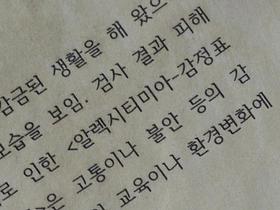 감금된 생활을 해 왔으
모습을 보임. 검사 결과 피해
로 인한 <알렉시티미아-감정표
은 고통이나 불안 등의 감
교육이나 환경변화에